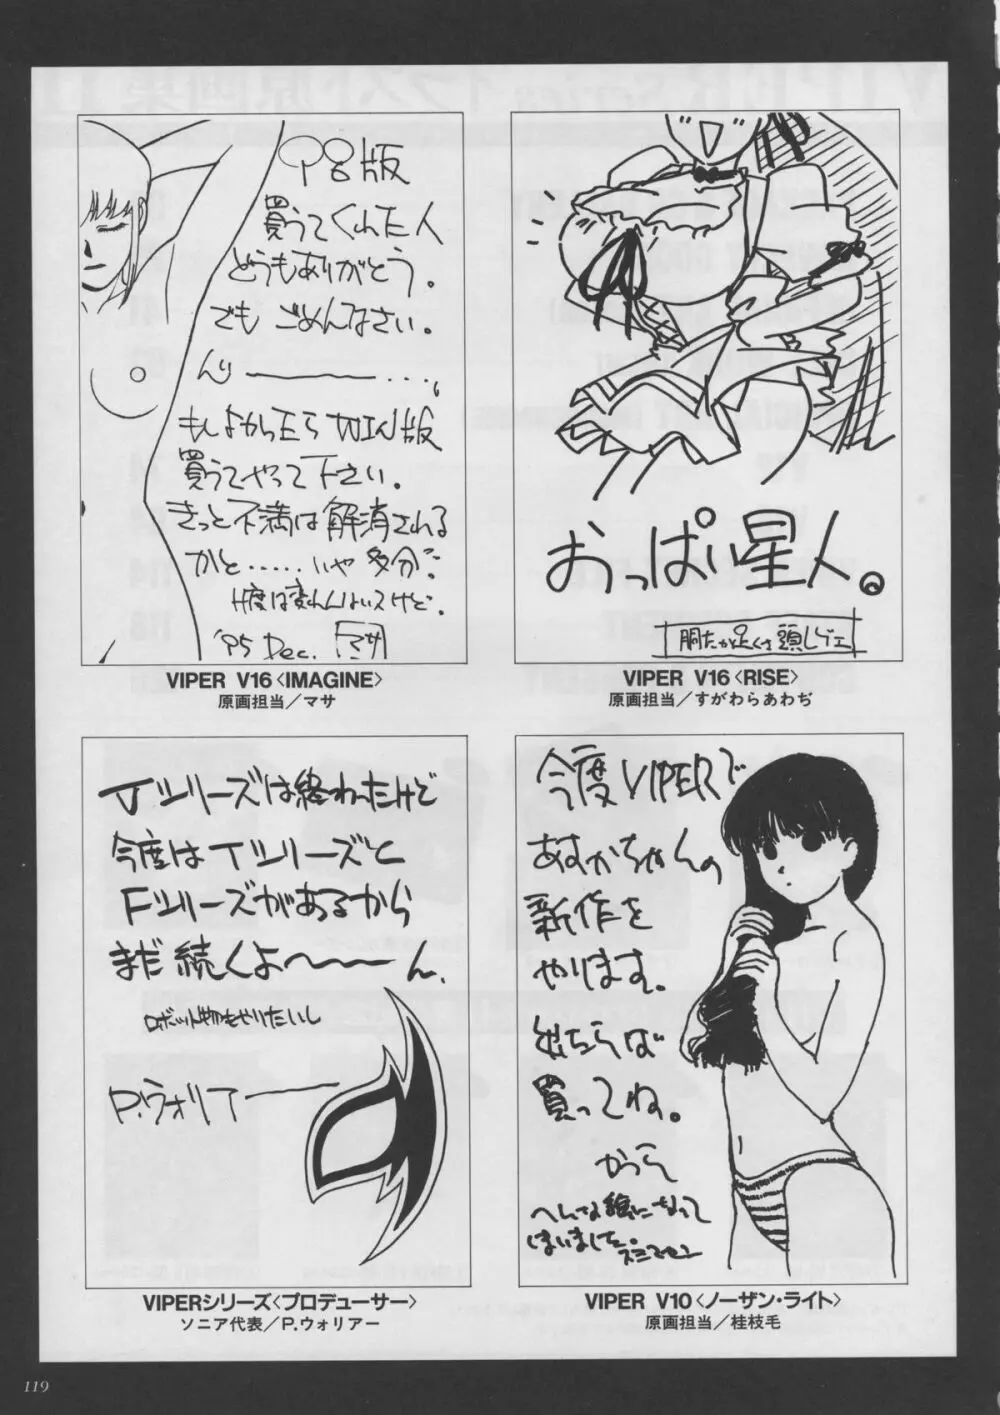 P98版
買うてくれた人
どうもありがとう。
でも ごめんなさい。
ん〜………。
もしよかったら WIN版
買うてやって下さい。
きっと不満は解消される
かと……いや多分…
H度は変わんないスけど。
'95 Dec. マサ
VIPER V16〈IMAGINE〉
原画担当／マサ
おっぱい星人。
VIPER V16〈RISE〉
原画担当／すがわらあわぢ
Jシリーズは終わったけど
今度はTシリーズと
Fシリーズがあるから
まだ続くよ〜〜〜ん。
ロボット物もやりたいし
P.ウォリアー
VIPERシリーズ〈プロデューサー〉
ソニア代表／P.ウォリアー
今度VIPERで
あすかちゃんの
新作を
やります。
出たらば
買ってね。
かつら
へんな絵になって
しまいました。スミマセン
VIPER V10〈ノーザン・ライト〉
原画担当／桂枝毛
119